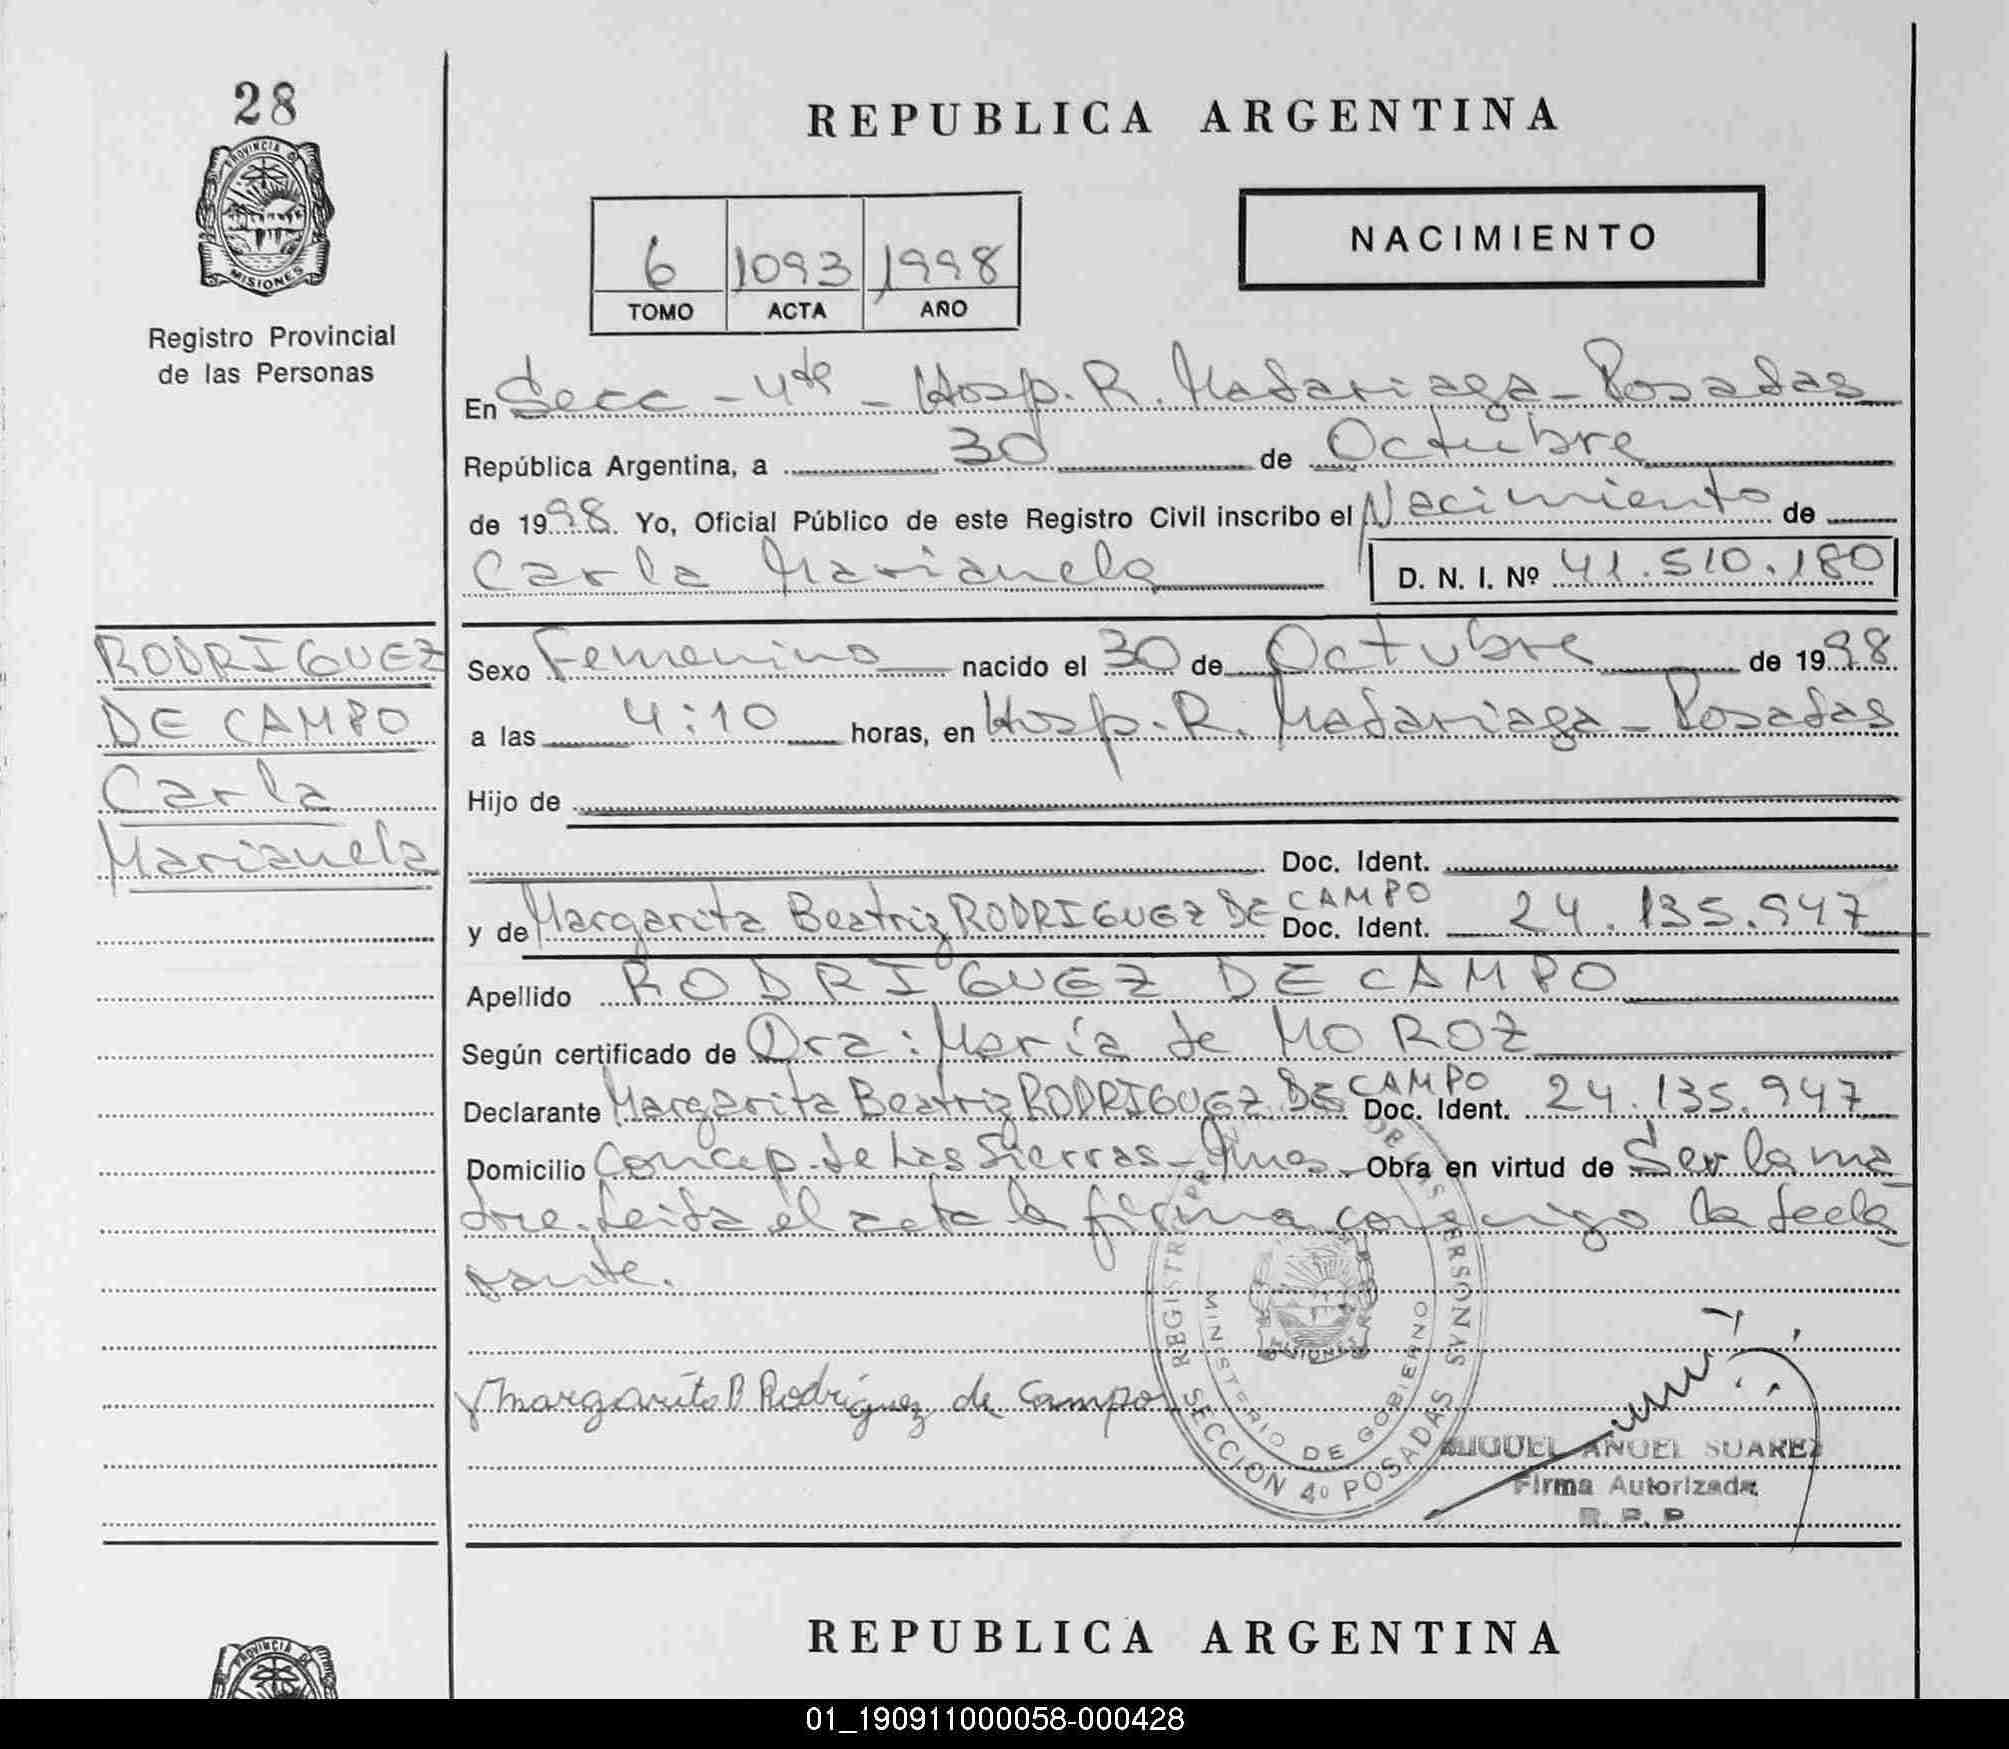 28
PROVINCIA DE
MISIONES
Registro Provincial
de las Personas
RODRIGUEZ
DE CAMPO
Carla
Marianela
REPUBLICA ARGENTINA
6 1093 1998
TOMO ACTA AÑO
NACIMIENTO
En Secc - 4ta - Hosp. R. Madariaga - Posadas
República Argentina, a 30 de Octubre
de 1998. Yo, Oficial Público de este Registro Civil inscribo el Nacimiento de
Carla Marianela D. N. I. Nº 41.510.180
Sexo Femenino nacido el 30 de Octubre de 1998
a las 4:10 horas, en Hosp. R. Madariaga - Posadas
Hijo de
Doc. Ident.
y de Margarita Beatriz RODRIGUEZ DE CAMPO Doc. Ident. 24.135.947
Apellido RODRIGUEZ DE CAMPO
Según certificado de Dra: María de MOROZ
Declarante Margarita Beatriz RODRIGUEZ DE CAMPO Doc. Ident. 24.135.947
Domicilio Concep. de Las Sierras - Mnes Obra en virtud de Ser la ma
dre. Leida el acta la firma conmigo la decla
rante.
Margarita B Rodríguez de Campo
MINISTERIO DE GOBIERNO
SECCION 4º POSADAS
MIGUEL ANGEL SUAREZ
Firma Autorizada
R. P. P
REPUBLICA ARGENTINA
PROVINCIA DE
01_190911000058-000428